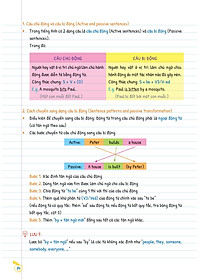 1. Câu chủ động và câu bị động (Active and passive sentences)
• Trong tiếng Anh có 2 dạng câu là câu chủ động (Active sentences) và câu bị động (Passive
sentences).
Trong đó:
CÂU CHỦ ĐỘNG
CÂU BỊ ĐỘNG
Người hay vật ở vị trí chủ ngữ làm hành
động được diễn tả bằng động từ.
Công thức chung: S + V + (O)
E.g. A mosquito bit Paul.
(Một con muỗi đốt Paul.)
Người hay vật ở vị trí làm chủ ngữ chịu hành
động do một tác nhân nào đó gây nên.
Công thức chung: S + be + V3/ed
E.g. Paul is bitten by a mosquito.
(Paul bị một con muỗi đốt.)
2. Cách chuyển sang dạng câu bị động (Sentence patterns and passive transformation)
• Điều kiện để chuyển sang câu bị động: Động từ trong câu chủ động phải là ngoại động từ
(có tân ngữ theo sau)
• Các bước chuyển từ câu chủ động sang câu bị động:
Active: Peter builds a house
Passive: A house is built (by Peter)
Bước 1: Xác định tân ngữ của câu chủ động
Bước 2: Dùng tân ngữ vừa tìm được làm chủ ngữ cho câu bị động
Bước 3: Chia động từ "to be"
Bước 4: Thêm quá khứ phân từ (V3/Ved) của động từ chính vào sau "to be"
Bước 5: Thêm "by + tân ngữ mới"
LƯU Ý:
Lược bỏ "by + tân ngữ" nếu sau "by" là các từ không xác định như "people, they, someone,
somebody, everyone, ..."